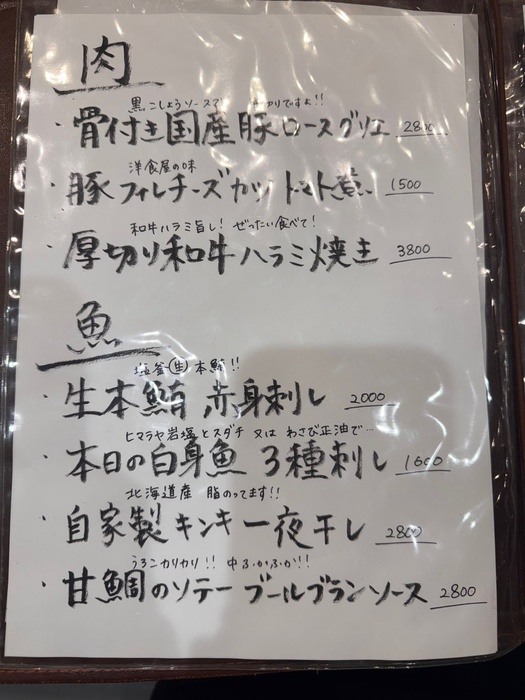 肉
黒こしょうソースで
骨付き国産豚ロースグリエ
洋食屋の味
豚フィレチーズカツ トマト煮 1500
和牛ハラミ旨し! ぜったい食べて!
厚切り和牛ハラミ焼き 3800
魚
塩釜 生 本鮪!!
生本鮪 赤身刺し 2000
ヒマラヤ岩塩とスダチ 又は わさび正油で…
本日の白身魚 3種刺し 1600
北海道産 脂のってます!!
自家製キンキ一夜干し 2800
うろこカリカリ!! 中ふかふか!!
甘鯛のソテー ブールブランソース 2800